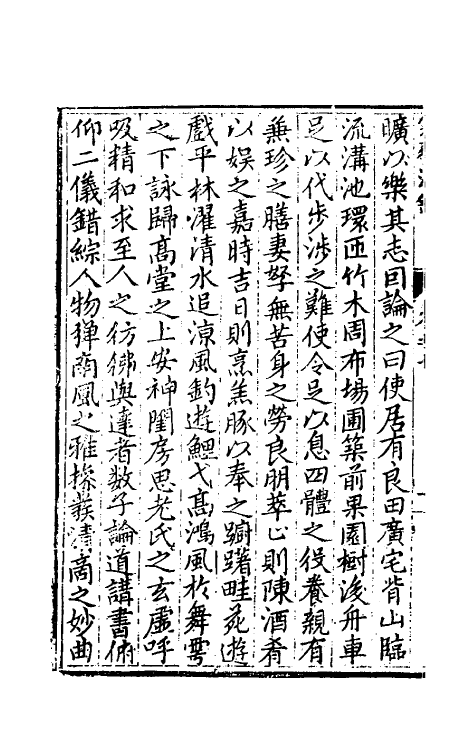 曠以樂其志囙論之曰使居有良田廣宅背山臨
流溝池環匝竹木周布場圃築前果園樹後舟車
足以代步涉之難使令足以息四體之役養親有
兼珍之膳妻孥無苦身之勞良朋萃止則陳酒肴
以娛之嘉時吉日則烹羔豚以奉之蹰躇畦苑遊
戲平林濯清水追涼風釣遊鯉弋髙鴻風於舞雩
之下詠歸髙堂之上安神閨房思老氏之玄虛呼
吸精和求至人之彷彿與達者數子論道講書俯
仰二儀錯綜人物彈南風之雅操發清商之妙曲